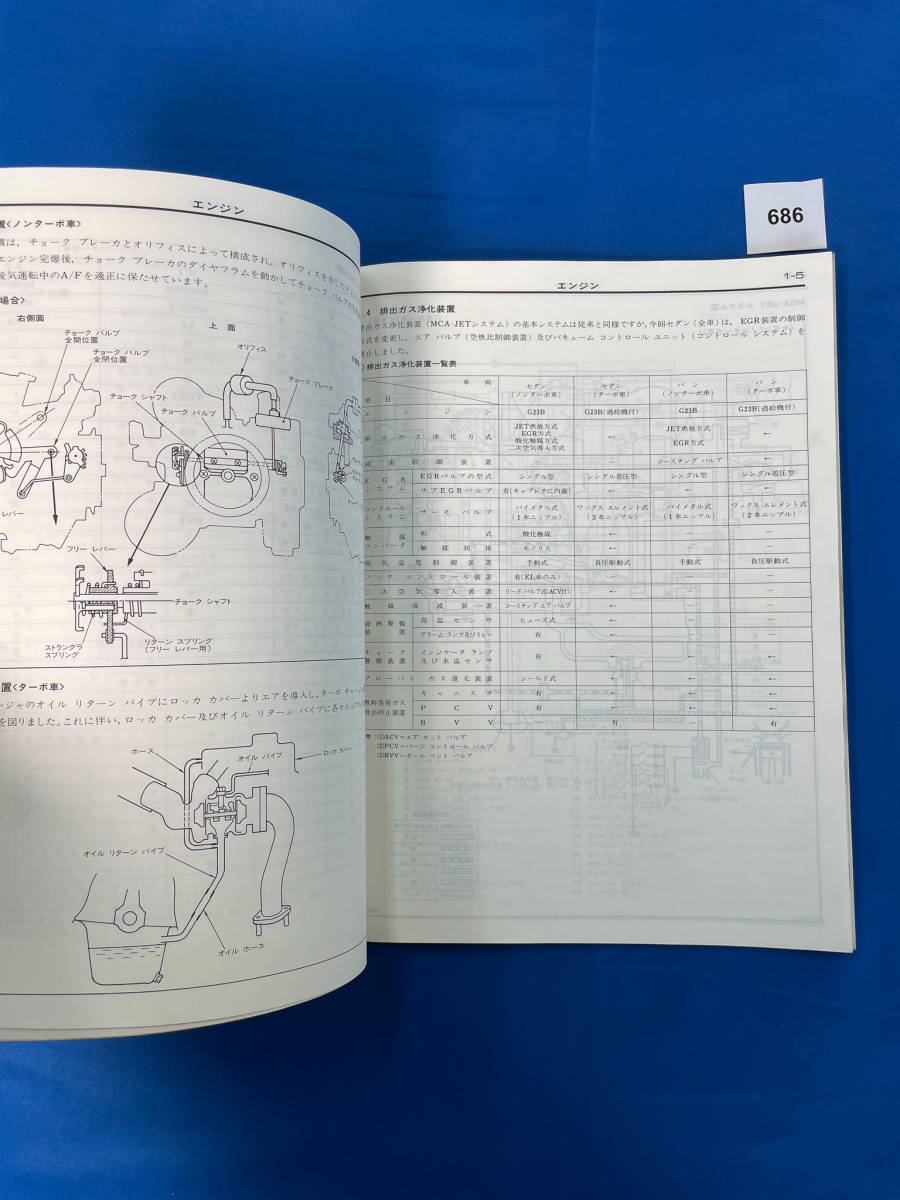 686
エンジン
置<ノンターボ車>
構は, チョーク ブレーカとオリフィスによって構成され, オリフィスを
エンジン完爆後, チョーク ブレーカのダイヤフラムを動かしてチョーク バルブを
暖気運転中のA/Fを適正に保たせています。
場合>
右側面
上 面
チョーク バルブ
全開位置
チョーク バルブ
全閉位置
オリフィス
チョーク ブレーカ
チョーク シャフト
チョーク バルブ
レバー
フリー レバー
チョーク シャフト
ストラングラ
スプリング
リターン スプリング
(フリー レバー用)
置<ターボ車>
ージャのオイル リターン パイプにロッカ カバーよりエアを導入し, ターボ チャー
を図りました。これに伴い, ロッカ カバー及びオイル リターン パイプに各々ニップル
ホース
オイル パイプ
ロッカ カバー
オイル リターン パイプ
オイル ホース
エンジン
1-5
4 排出ガス浄化装置
排出ガス浄化装置 (MCA-JETシステム) の基本システムは従来と同様ですが, 今回セダン (全車) は, EGR装置の制御
方式を変更し, エア バルブ (空燃比制御装置) 及びバキューム コントロール ユニット (コントロール システム) を
廃止しました。
排出ガス浄化装置一覧表
項目 車両 セダン (ノンターボ車) セダン (ターボ車) バン (ノンターボ車) バン (ターボ車)
エンジン G23B G23B(過給機付) G23B G23B(過給機付)
排出ガス浄化方式 JET燃焼方式 EGR方式 酸化触媒方式 二次空気導入方式 ← JET燃焼方式 EGR方式 ←
減速制御装置 − − コースチング バルブ ←
EGRシステム EGRバルブの型式 シングル型 シングル差圧型 シングル型 シングル差圧型
サブEGRバルブ 有(キャブレタに内蔵) ← ← ←
コントロールシステム サーモバルブ バイメタル式 (1本ニップル) ワックス エレメント式 (3本ニップル) バイメタル式 (1本ニップル) ワックス エレメント式 (2本ニップル)
触媒コンバータ 形式 酸化触媒 ← − −
触媒担体 モノリス ← − −
吸気温度制御装置 手動式 負圧駆動式 手動式 負圧駆動式
ノックコントロール装置 有(EL車のみ) ← − −
二次空気導入装置 リード バルブ式(ACV付) ← − −
触媒保護装置 コースチング エア バルブ ← − −
過熱警報装置 高温センサ ヒューズ式 ← − −
アラーム ランプ及びリレー 有 ← − −
チョーク警報装置 インジケータ ランプ及び水温センサ 有 ← ← ←
ブローバイ ガス還元装置 シールド式 ← ← ←
燃料蒸発ガス排出抑止装置 キャニスタ 有 ← ← ←
PCV 有 ← ← ←
BVV − 有 − 有
考: (1)ACV=エア カット バルブ
(2)PCV=パージ コントロール バルブ
(3)BVV=ボール ベント バルブ